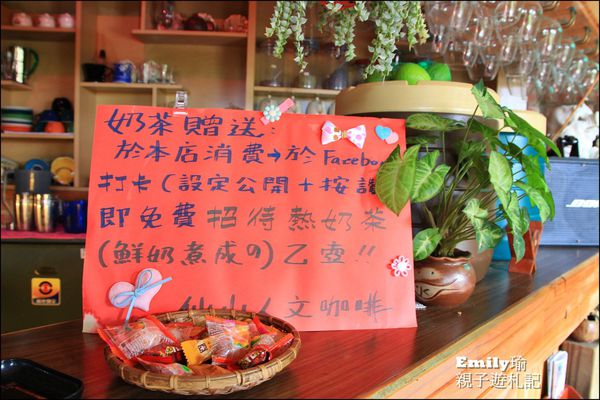 奶茶贈送:
於本店消費→於Facebook
打卡(設定公開+按讚
即免費招待熱奶茶
(鮮奶煮成の)乙壺!!
仙山人文咖啡
Emily瑜
親子遊札記